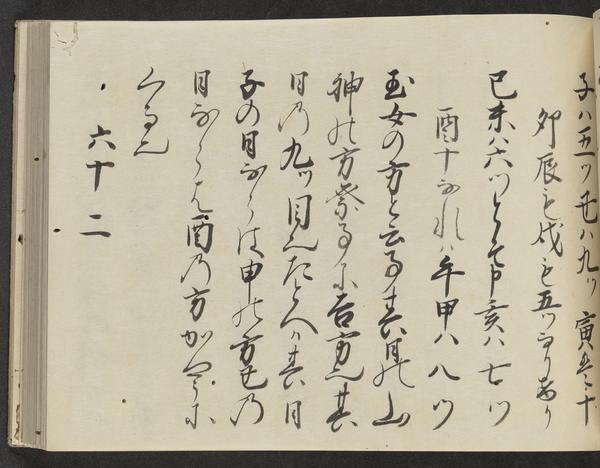 子ハ五ツ丑ハ九ツ 寅 十
卯辰も戌も五ツなりあり
巳未ハ六ツとそ申亥ハ七ツ
酉十なれハ午甲ハ八ツ
玉女の方と云る事其日の山
神の方 る 吉方也其
日の九ツ目也たとへハ其日
子の日ならは申の方丑の
日ならは酉の方かやうに
くる也
六十二